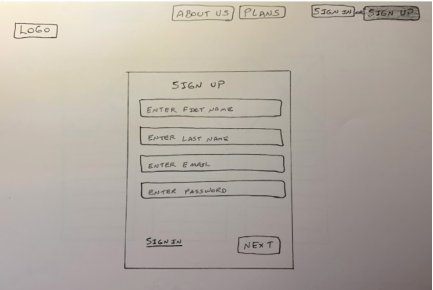 ABOUT US PLANS SIGN IN OR SIGN UP
LOGO
SIGN UP
ENTER FIRST NAME
ENTER LAST NAME
ENTER EMAIL
ENTER PASSWORD
SIGN IN NEXT